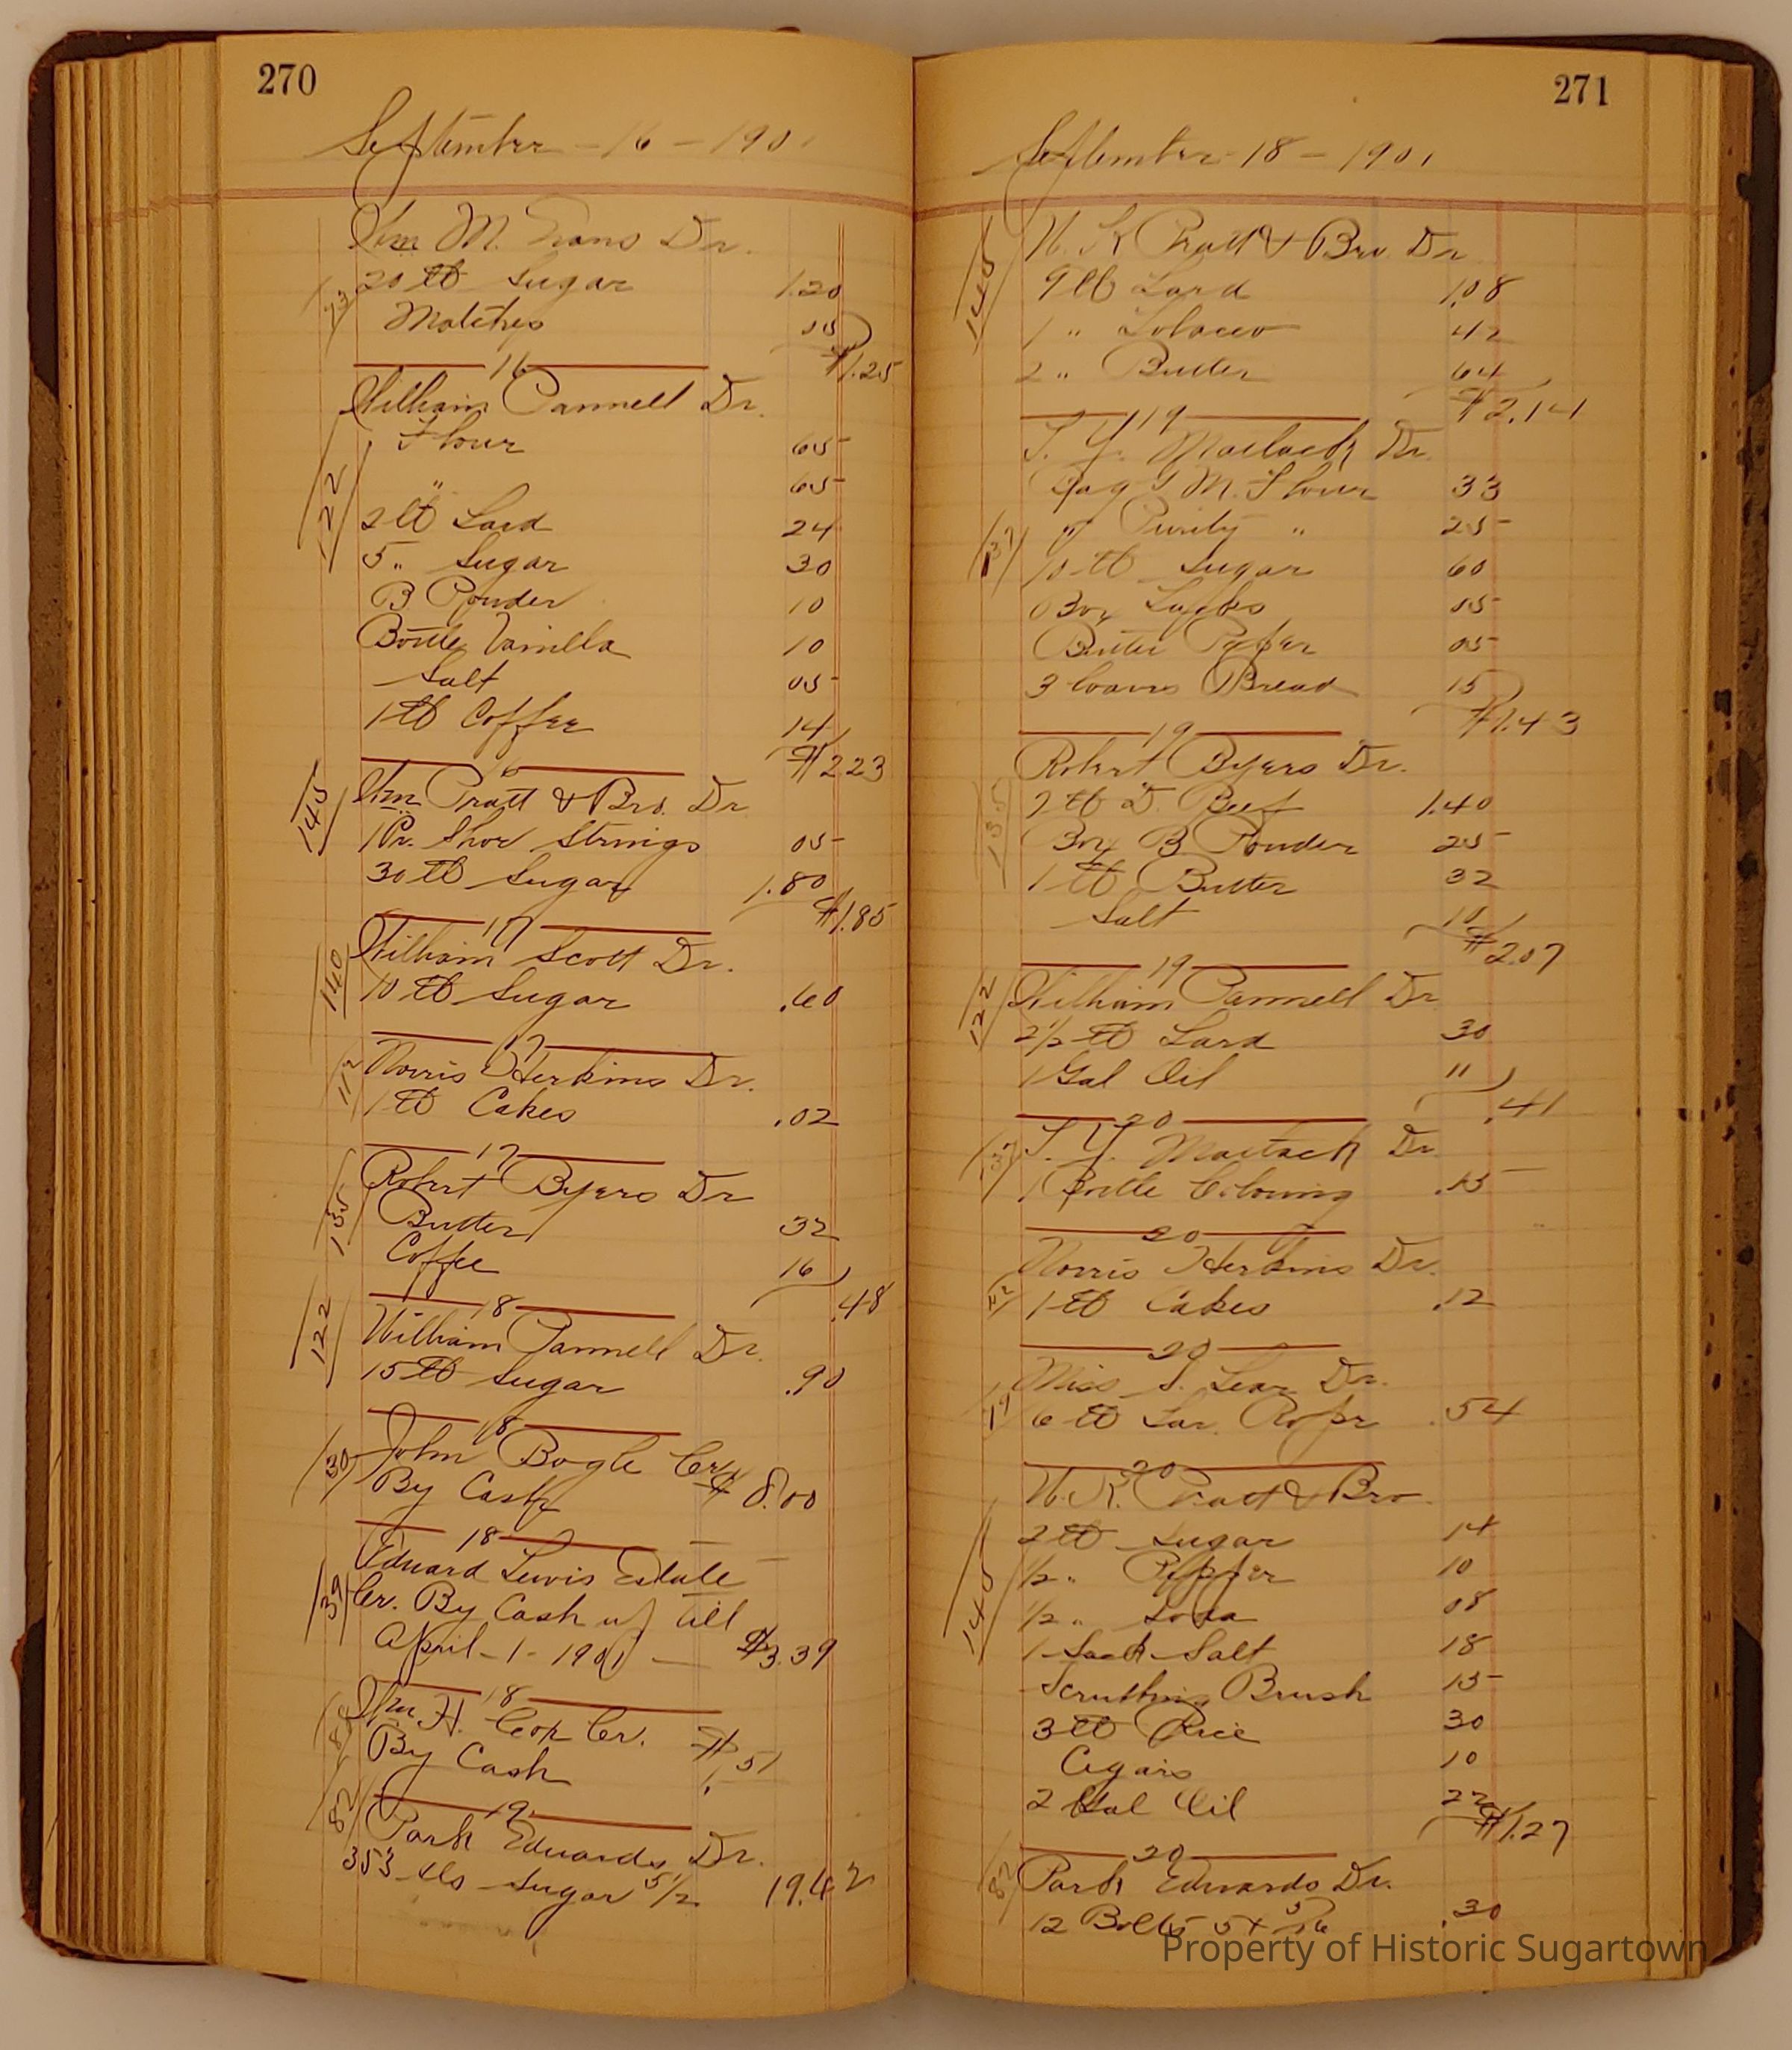 270
September - 16 - 1901
Wm M. Evans Dr.
20 lb Sugar 1.20
Matches 05
$1.25
16
William Pannell Dr.
122
Flour 65
" 65
2 lb Lard 24
5 " Sugar 30
B. Powder 10
Bottle Vanilla 10
Salt 05
1 lb Coffee 14
$2.23
16
145
Wm Pratt & Bro. Dr
1 Pr. Shoe Strings 05
30 lb Sugar 1.80
$1.85
17
140
William Scott Dr.
10 lb Sugar .60
17
112
Norris Herkins Dr.
1 lb Cakes .02
17
135
Robert Byers Dr
Butter 32
Coffee 16
.48
18
122
William Pannell Dr.
15 lb Sugar .90
18
130
John Bogle Cr
By Cash $8.00
18
139
Edward Lewis Estate
Cr. By Cash up till
April - 1 - 1901 — $3.39
18
Wm H. Cox Cr.
By Cash $.51
19
82
Park Edwards Dr.
353 lbs Sugar 5 1/2 19.42
271
September 18 - 1901
145
W. K Pratt & Bro Dr
9 lb Lard 1.08
1 " Tobacco 42
2 " Butter 64
$2.14
19
T. Y. Matlack Dr.
137
Bag G M. Flour 33
" Purity " 25
10 lb Sugar 60
Box Tacks 05
Butter Paper 05
3 loaves Bread 15
$1.43
19
135
Robert Byers Dr.
7 lb D. Beef 1.40
Box B Powder 25
1 lb Butter 32
Salt 10
$2.07
19
122
William Pannell Dr
2 1/2 lb Lard 30
1 Gal Oil 11
.41
20
137
T. Y. Matlack Dr
1 Bottle Coloring .15
20
112
Norris Herkins Dr.
1 lb Cakes .12
20
Miss S. Lear Dr.
6 lb Tar. Rope .54
20
W. K. Pratt & Bro
145
2 lb Sugar 14
1/2 " Pepper 10
1/2 " Soda 08
1 Sack Salt 18
Scrubbing Brush 15
3 lb Rice 30
Cigars 10
2 Gal Oil 22
$1.27
20
82
Park Edwards Dr.
12 Bolts 5 x 5/16 .30
Property of Historic Sugartown